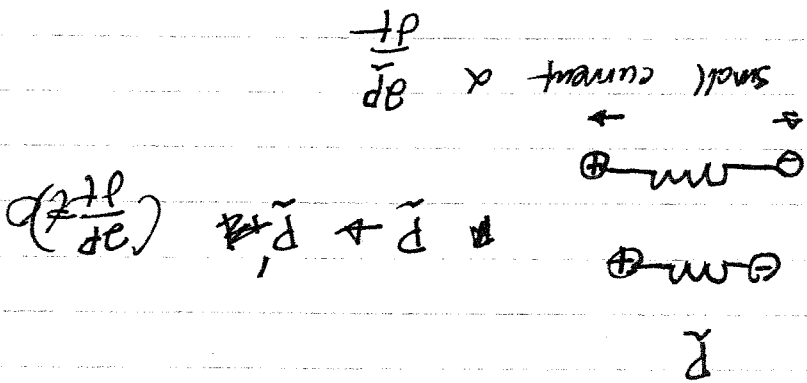 P̰
⊖ ⊕ P̰ → P̰' (∂P̰/∂t ≠ 0)
⊖ ⊕
← →
small current ∝ ∂P̰/∂t